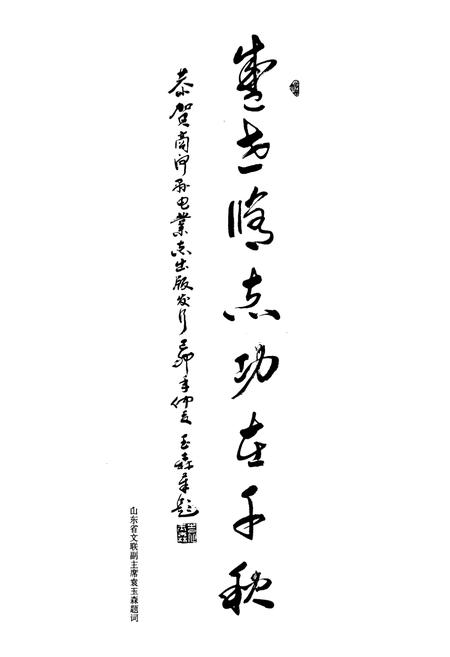 盛世修志功在千秋
恭贺商河县电业志出版发行己卯年仲夏玉森年题
山东省文联副主席袁玉森题词